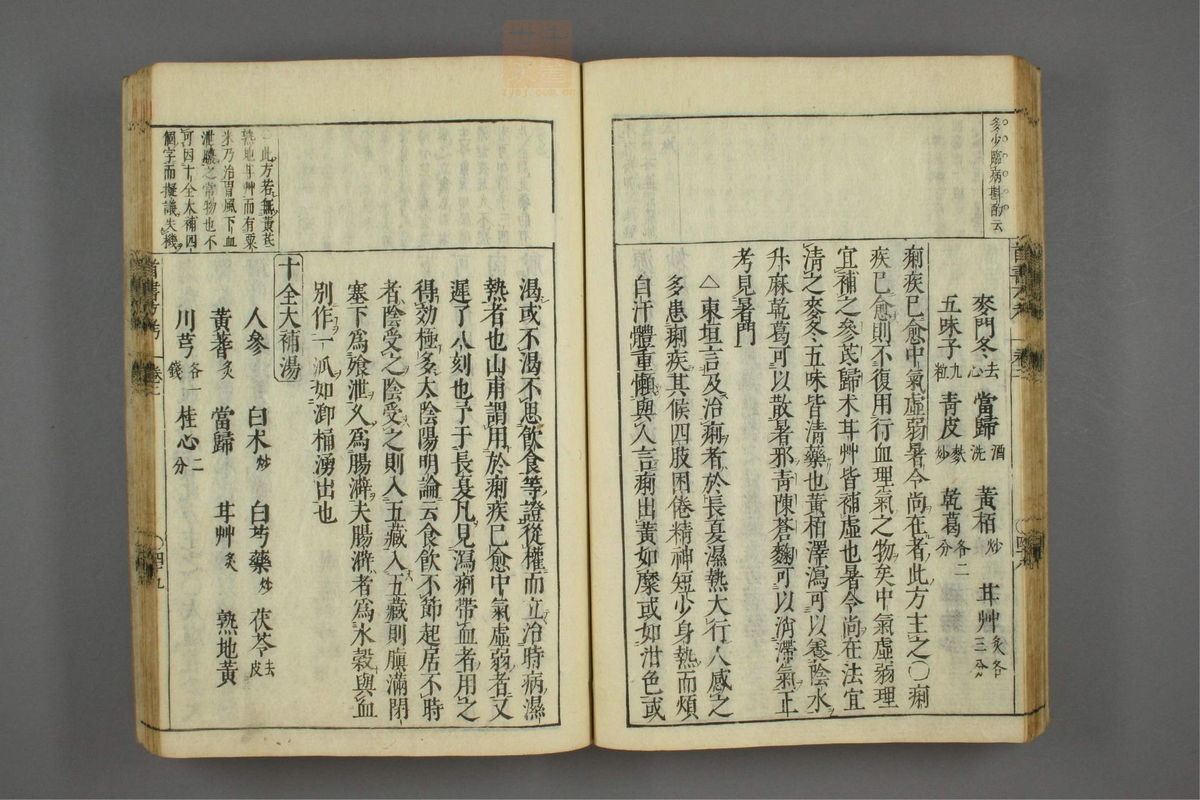 多少臨病斟酌云
麥門冬去心 當歸酒洗 黃栢炒 甘艸炙各三分
五味子九粒 青皮麩炒 乾葛各二分
痢疾已愈中氣虛弱暑令尚在者此方主之○痢
疾已愈則不復用行血理氣之物矣中氣虛弱理
宜補之參芪歸术甘艸皆補虛也暑令尚在法宜
清之麥冬五味皆清藥也黃栢澤瀉可以養陰水
升麻乾葛可以散暑邪青陳蒼麴可以消滯氣正
考見暑門
△東垣言及治痢者於長夏濕熱大行人感之
多患痢疾其候四肢困倦精神短少身熱而煩
自汗體重懶與人言痢出黃如糜或如泔色或
渴或不渴不思飲食等證從權而立治時病濕
熱者也山甫謂用於痢疾已愈中氣虛弱者又
遲了八刻也予于長夏凡見瀉痢帶血者用之
得効極多太陰陽明論云食飲不節起居不時
者陰受之陰受之則入五藏入五藏則䐜滿閉
塞下爲飧泄久爲腸澼夫腸澼者爲水穀與血
別作一派如㵼桶湧出也
此方若無黃芪
熟地甘艸而有粟
米乃治胃風下血
泄膿之常物也不
可因十全大補四
個字而擬議失機
十全大補湯
人參 白术炒 白芍藥炒 茯苓去皮
黃蓍炙 當歸 甘艸炙 熟地黃
川芎各一錢 桂心二分